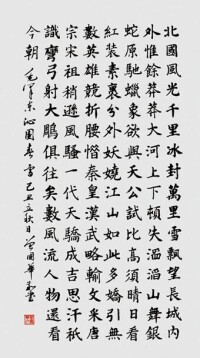 北國風光千里冰封萬里雪飄望長城內
外惟餘莽莽大河上下頓失滔滔山舞銀
蛇原馳蠟象欲與天公試比高須晴日看
紅裝素裹分外妖嬈江山如此多嬌引無
數英雄競折腰惜秦皇漢武略輸文采唐
宗宋祖稍遜風騷一代天驕成吉思汗祇
識彎弓射大鵰俱往矣數風流人物還看
今朝 毛澤東沁園春雪己丑立秋日